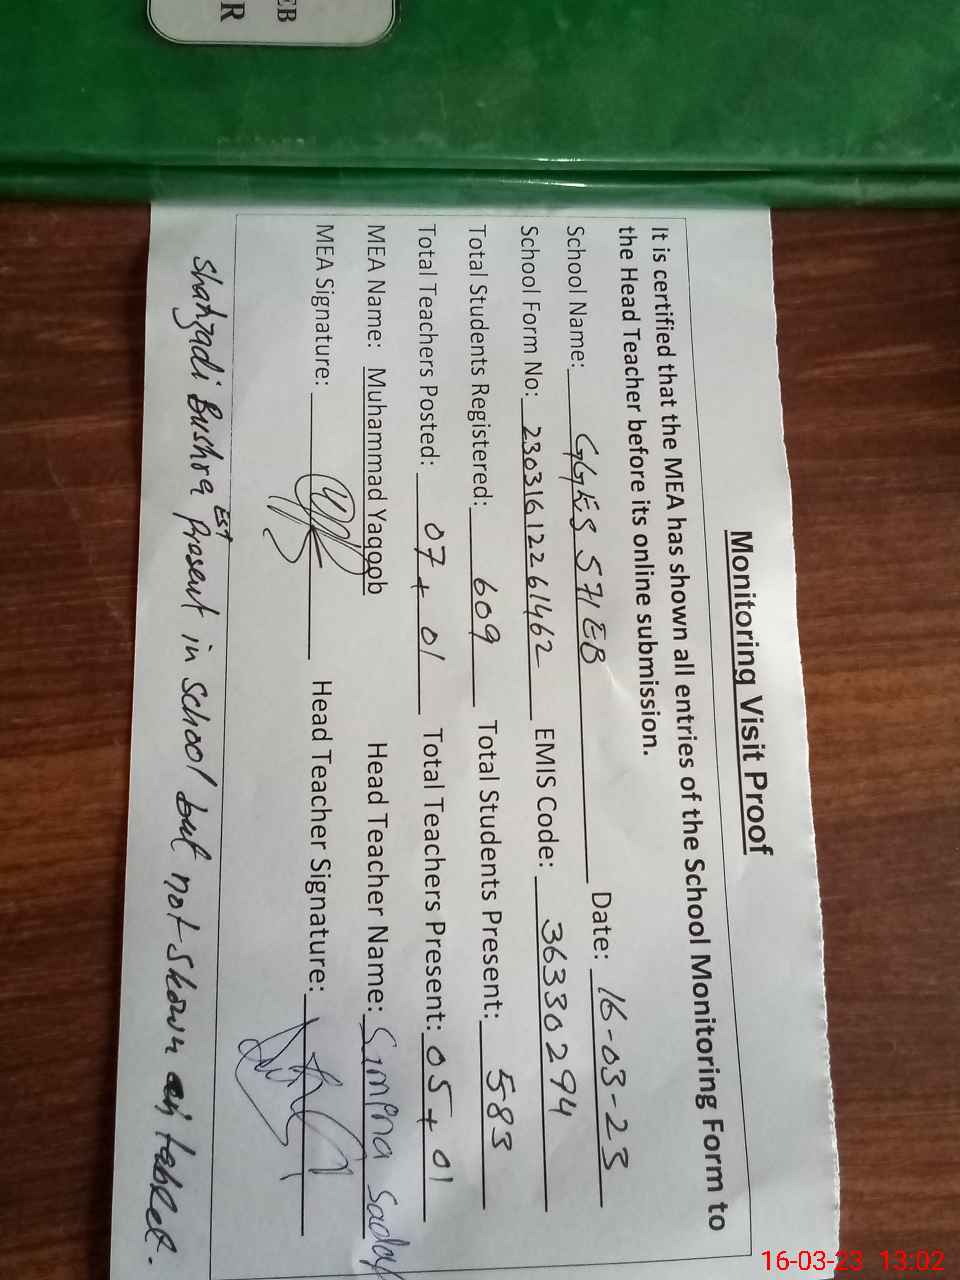 EB
R
Monitoring Visit Proof
It is certified that the MEA has shown all entries of the School Monitoring Form to
the Head Teacher before its online submission.
School Name: GGES 571EB Date: 16-03-23
School Form No: 23031612261462 EMIS Code: 36330294
Total Students Registered: 609 Total Students Present: 583
Total Teachers Posted: 07 + 01 Total Teachers Present: 05 + 01
MEA Name: Muhammad Yaqoob Head Teacher Name: Simena Saday
MEA Signature: Head Teacher Signature:
Shahzadi Bushra EST Present in School but not shown in tablet.
16-03-23 13:02